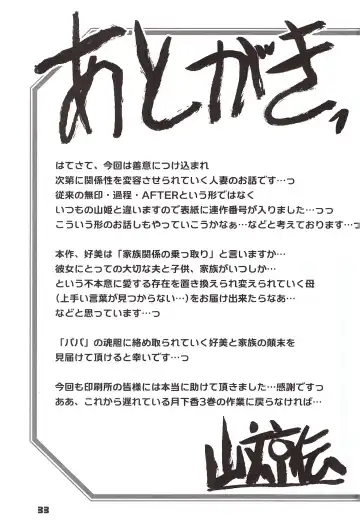 あとがき、
はてさて、今回は善意につけ込まれ
次第に関係性を変容させられていく人妻のお話です…っ
従来の無印・過程・AFTERという形ではなく
いつもの山姫と違いますので表紙に連作番号が入りました…っっ
こういう形のお話しもやっていこうかなぁ…などと考えております…っ
本作、好美は「家族関係の乗っ取り」と言いますか…
彼女にとっての大切な夫と子供、家族がいつしか…
という不本意に愛する存在を置き換えられ変えられていく母
(上手い言葉が見つからない…)をお届け出来たらなあ…
などと思っています…っ
「パパ」の魂胆に絡め取られていく好美と家族の顛末を
見届けて頂けると幸いです…っ
今回も印刷所の皆様には本当に助けて頂きました…感謝ですっ
ああ、これから遅れている月下香3巻の作業に戻らなければ…
山文京伝
33